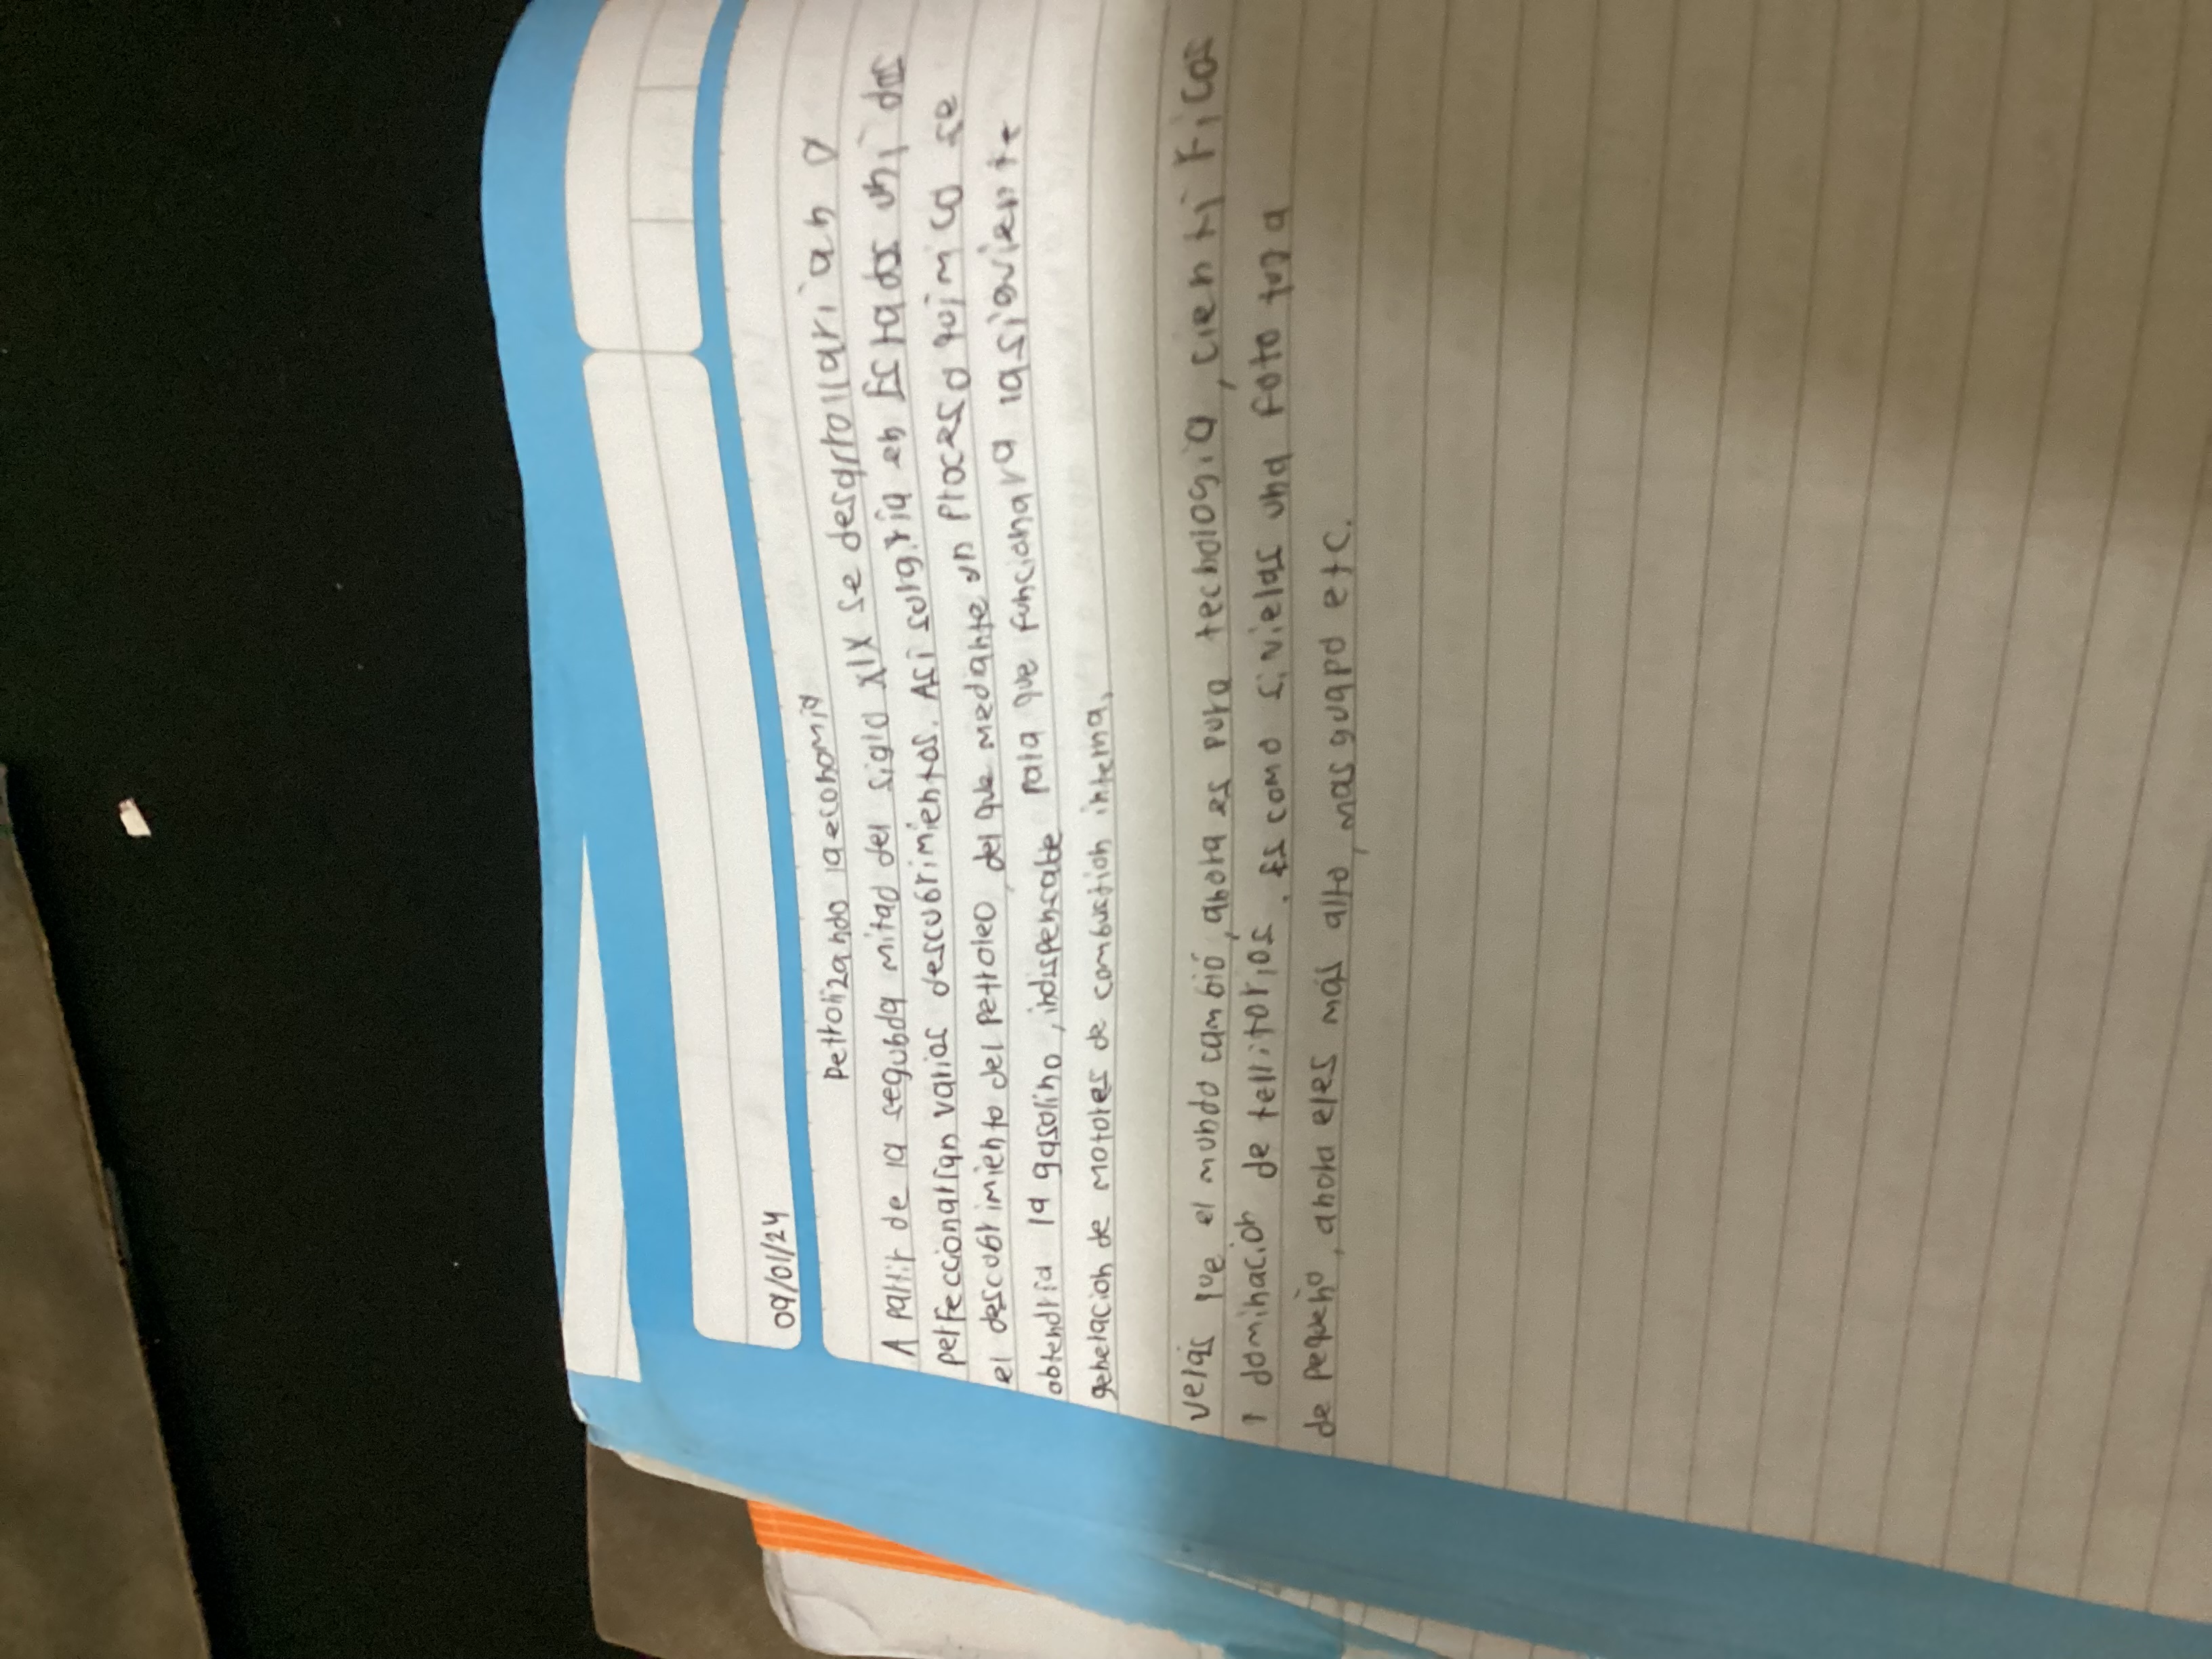 09/01/24
Petrolizando la economia
A partir de la segubda mitad del siglo XIX se desarrollarian o
perfeccionarían varios descubrimientos. Asi surgiria en Estados unidos
el descubrimiento del Petroleo, del que medante un Proceso quimico se
obtendria la gasolina, indispensabe para que funcionara la siguiente
generacion de motores de combustion interna,
verás que el mundo cambió, ahora es pura tecnologia, cientificos
y dominacion de territorios. Es como si vieras una foto tuya
de pequeño, ahora eres más alto, mas guapo etc.